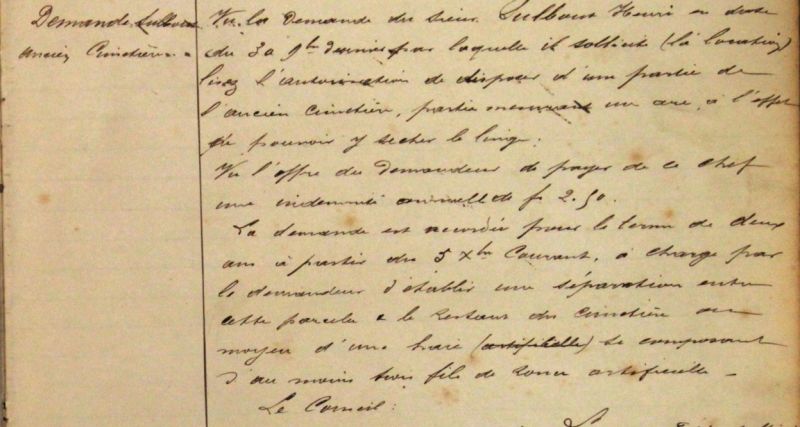 Demande Lulboux
ancien Cimetière. -
Vu la demande du sieur Lulboux Henri en date
du 30 9bre dernier par laquelle il sollicite (la location)
lisez l'autorisation de disposer d'une partie de
l'ancien cimetière, partie mesurant un are, à l'effet
de pouvoir y secher le linge.
Vu l'offre du demandeur de payer de ce chef
une indemnité annuelle de fr 2.50.
La demande est accordée pour le terme de deux
ans à partir du 5 Xbre Courant, à charge par
le demandeur d'établir une séparation entre
cette parcelle & le restant du cimetière au
moyen d'une haie (artificielle) se composant
d'au moins trois fils de ronce artificielle -
Le Conseil: